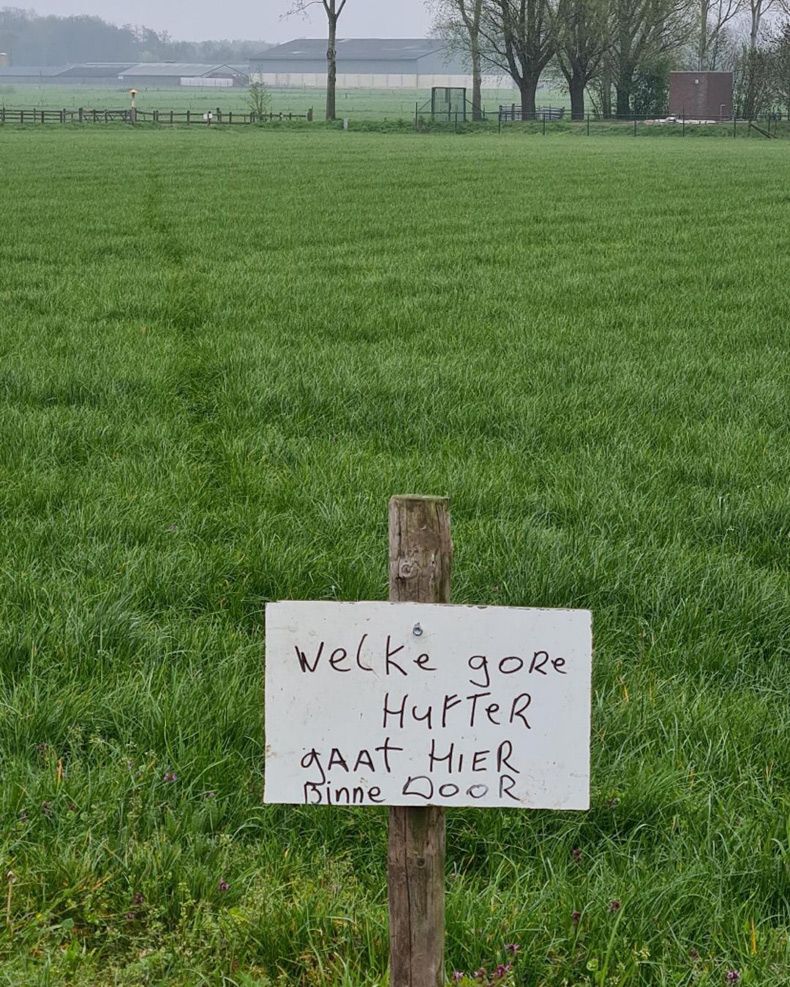 Welke gore
Hufter
gaat hier
Binne door